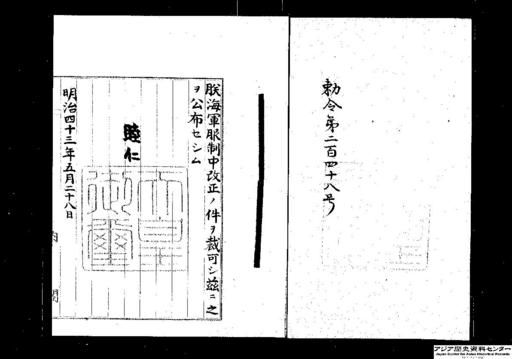 勅令第二百四十八号
朕海軍服制中改正ノ件ヲ裁可シ茲ニ之
ヲ公布セシム
睦仁
天皇御璽
明治四十三年五月二十八日
内閣
アジア歴史資料センター
Japan Center for Asian Historical Records